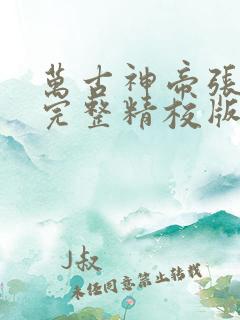 萬古神帝張
完整精校版
J叔
未经同意禁止转载